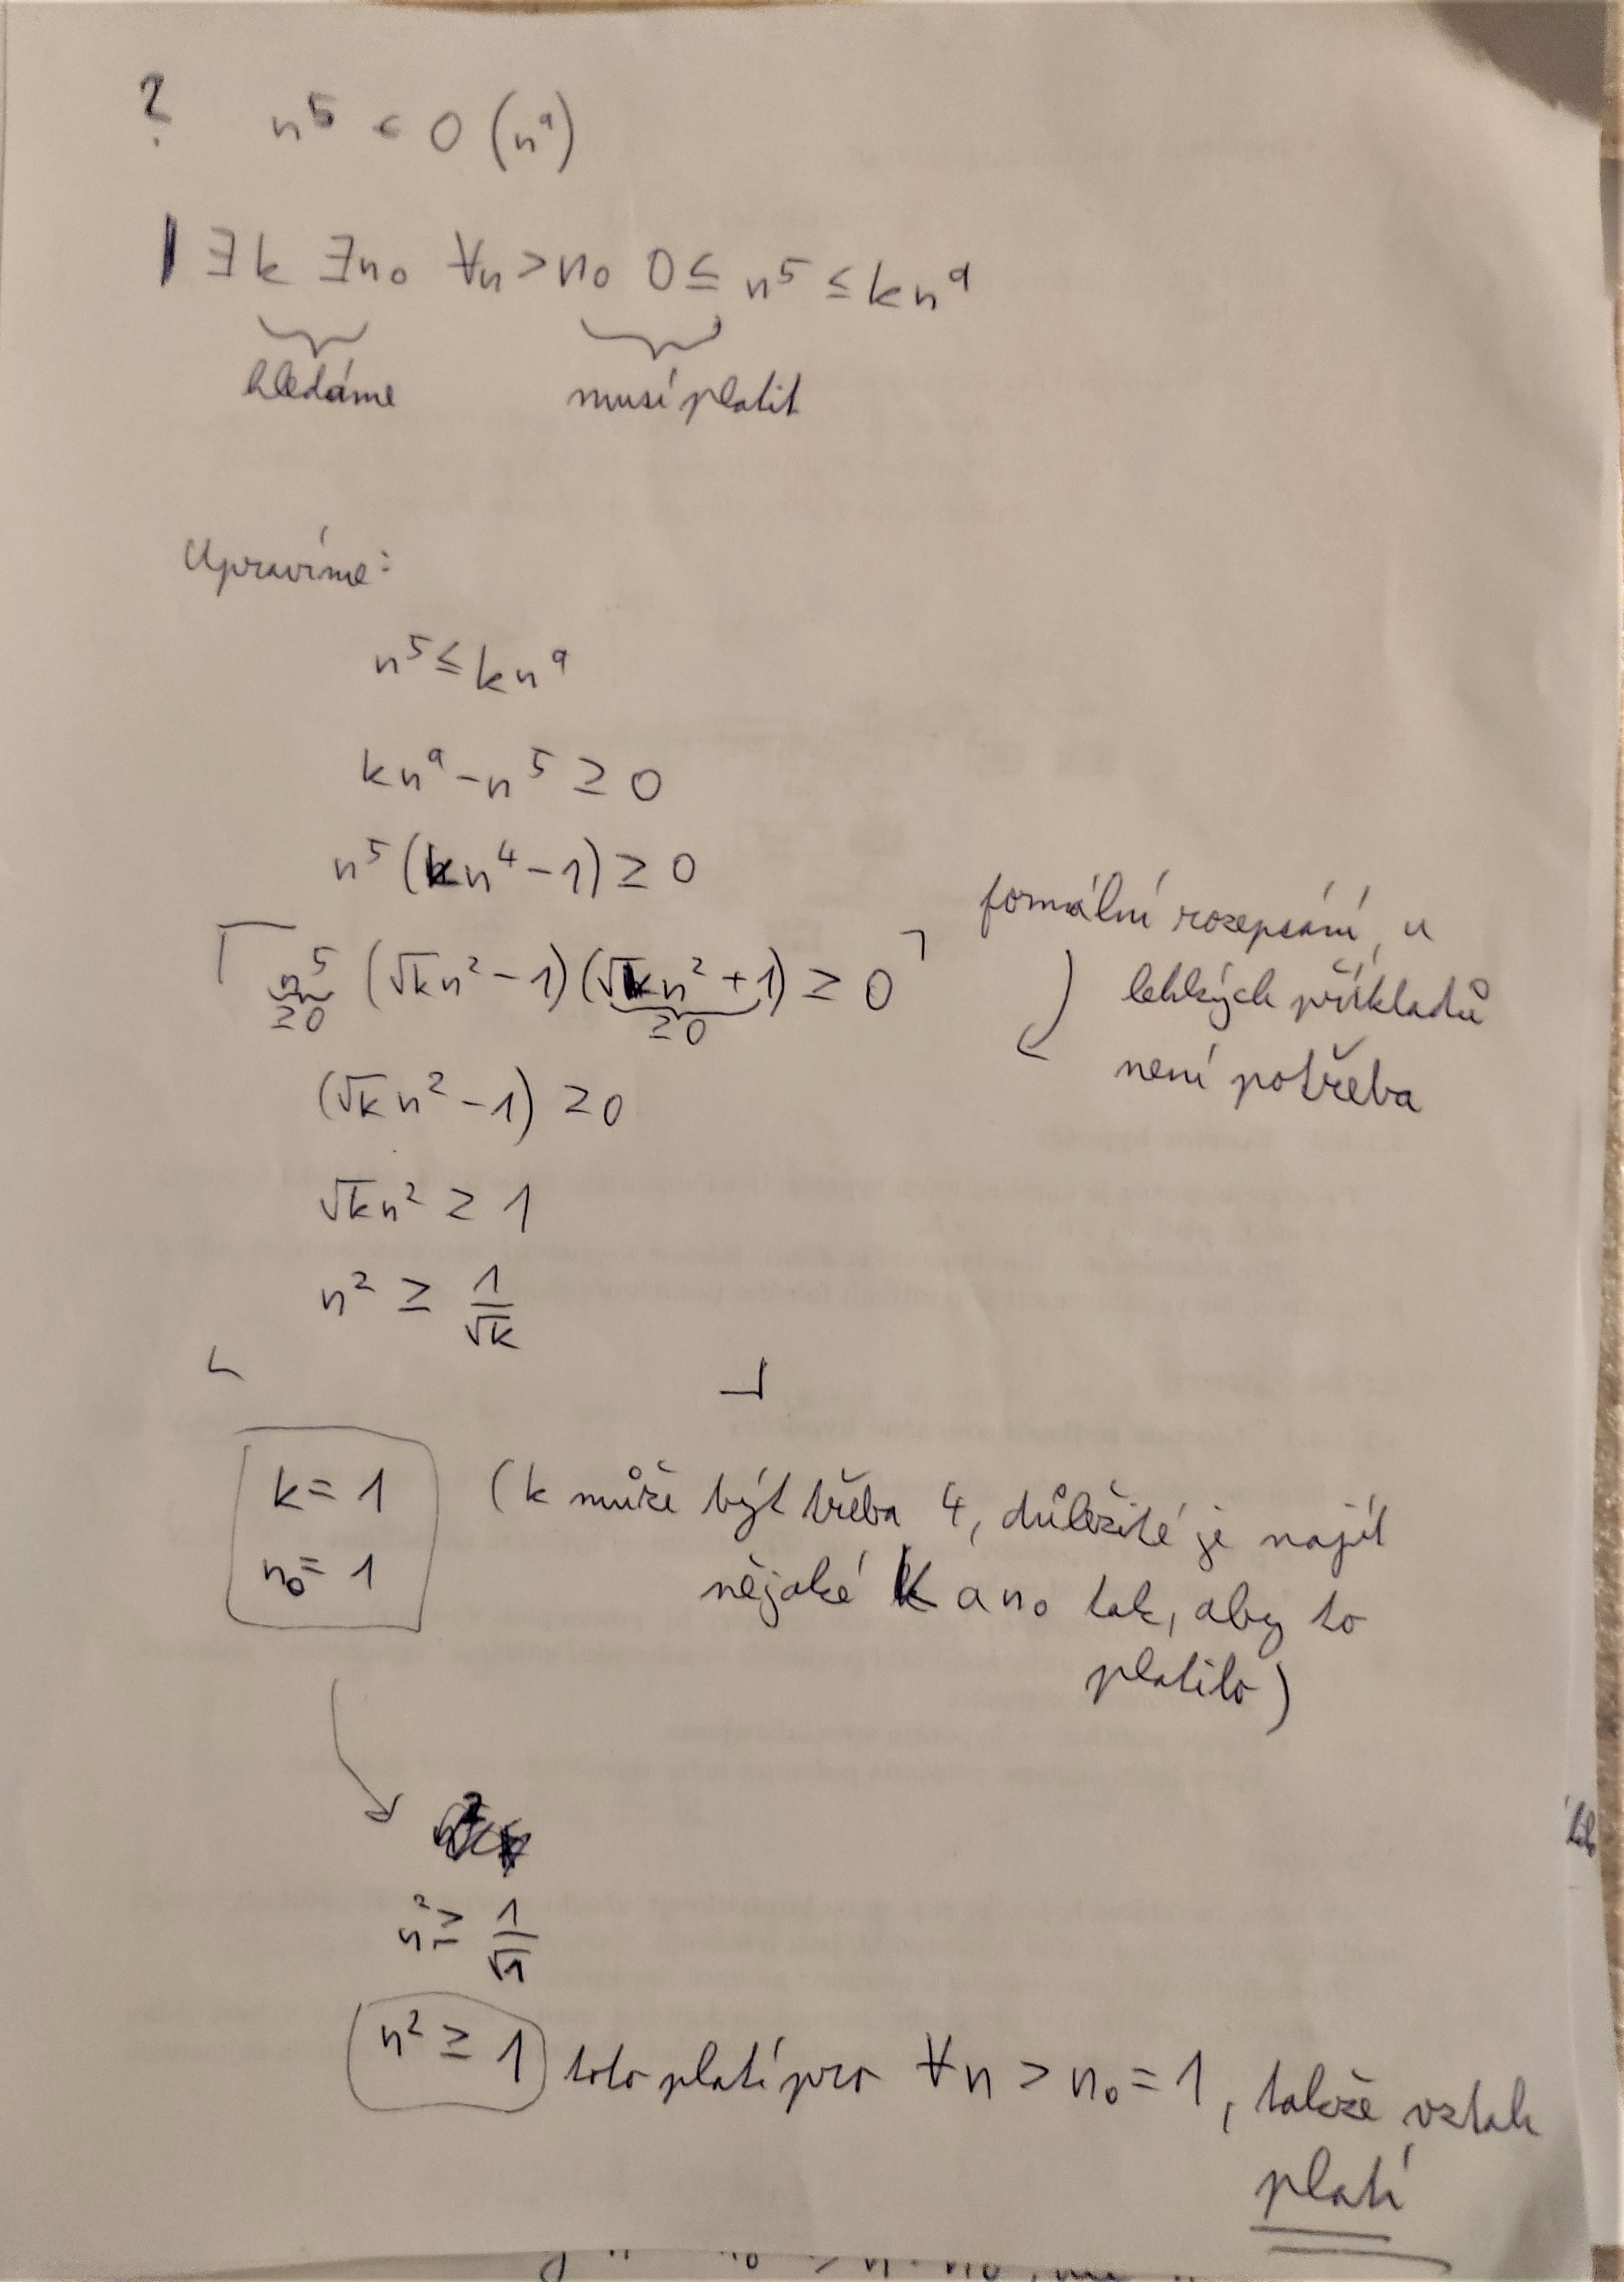 ? n⁵ ∈ O(n⁹)
∃k ∃n₀ ∀n > n₀ 0 ≤ n⁵ ≤ kn⁹
hledáme musí platit
Upravíme:
n⁵ ≤ kn⁹
kn⁹ - n⁵ ≥ 0
n⁵(kn⁴ - 1) ≥ 0
n⁵ (√k n² - 1)(√k n² + 1) ≥ 0
≥0 ≥0
formální rozepsání, u
lehkých příkladů
není potřeba
(√k n² - 1) ≥ 0
√k n² ≥ 1
n² ≥ 1/√k
k = 1 (k může být třeba 4, důležité je najít
n₀ = 1 nějaké k a n₀ tak, aby to
platilo)
n² ≥ 1/√1
n² ≥ 1 toto platí pro ∀n > n₀ = 1, takže vztah
platí